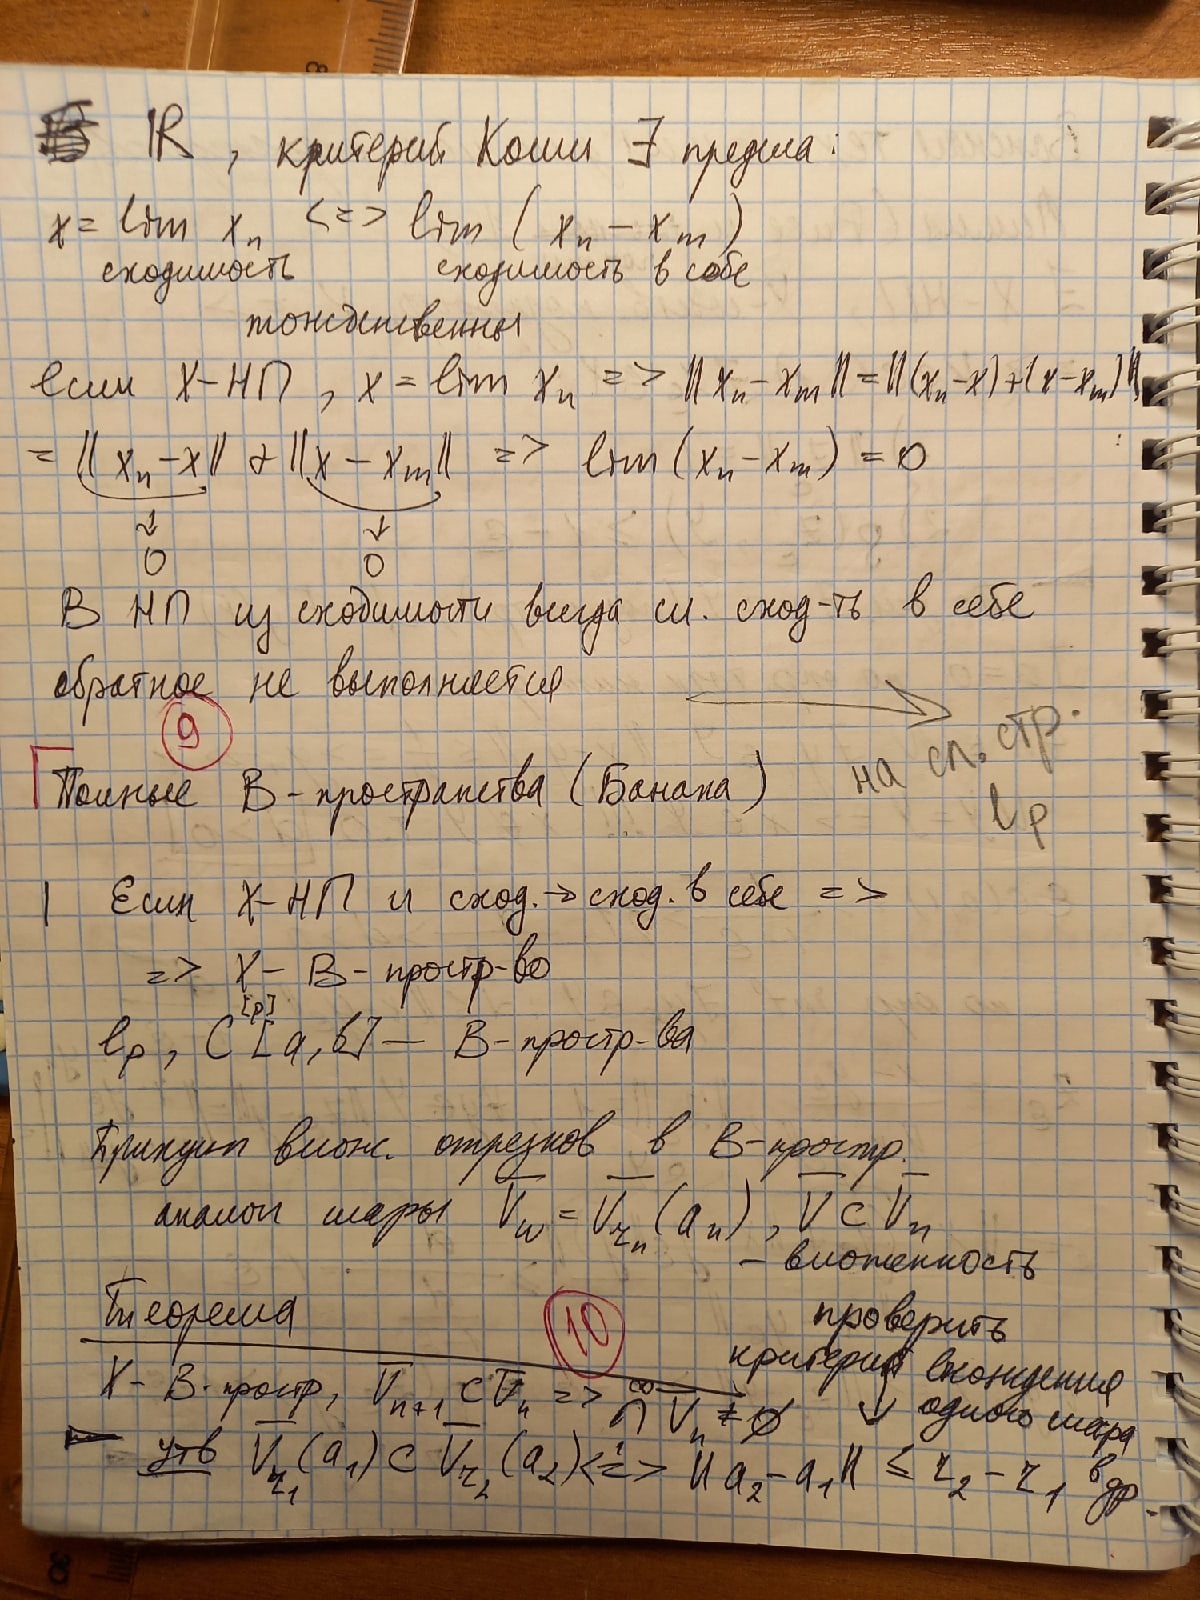 ℝ, критерий Коши ∃ предела:
x = lim xₙ <=> lim (xₙ − xₘ)
сходимость сходимость в себе
тождественны
если X-НП, x = lim xₙ => ‖xₙ − xₘ‖ = ‖(xₙ − x) + (x − xₘ)‖
= ‖xₙ − x‖ + ‖x − xₘ‖ => lim (xₙ − xₘ) = 0
↓ ↓
0 0
В НП из сходимости всегда сл. сход-ть в себе
обратное не выполняется
→ на сл. стр.
lₚ
9
Полные B-пространства (Банаха)
Если X-НП и сход. → сход. в себе =>
=> X − B-простр-во
lₚ, C^[p] [a, b] — B-простр-ва
Принцип влож. отрезков в B-простр.
аналог шары V̅ₙ = V̅_rₙ (aₙ), V̅ ⊂ V̅ₙ
– вложенность
Теорема
10
проверить
критерий вхождения
одного шара
в др.
X − B-простр, V̅ₙ₊₁ ⊂ V̅ₙ => ∞∩₁ V̅ₙ ≠ ∅
утв V̅_r₁ (a₁) ⊂ V̅_r₂ (a₂) <=> ‖a₂ − a₁‖ ≤ r₂ − r₁